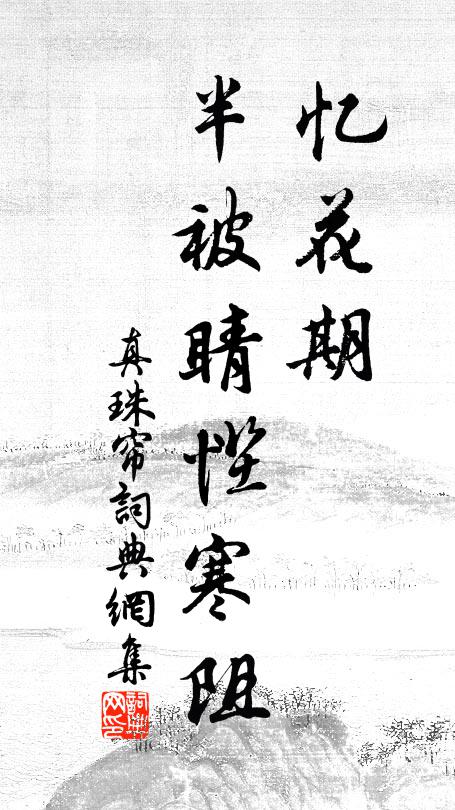 忆花期
半被晴悭寒阻
真珠帘詞典網集